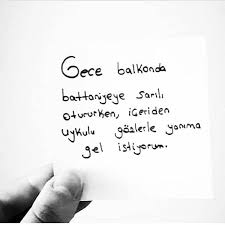 Gece balkonda
battaniyeye sarılı
otururken, içeriden
uykulu gözlerle yanıma
gel istiyorum.